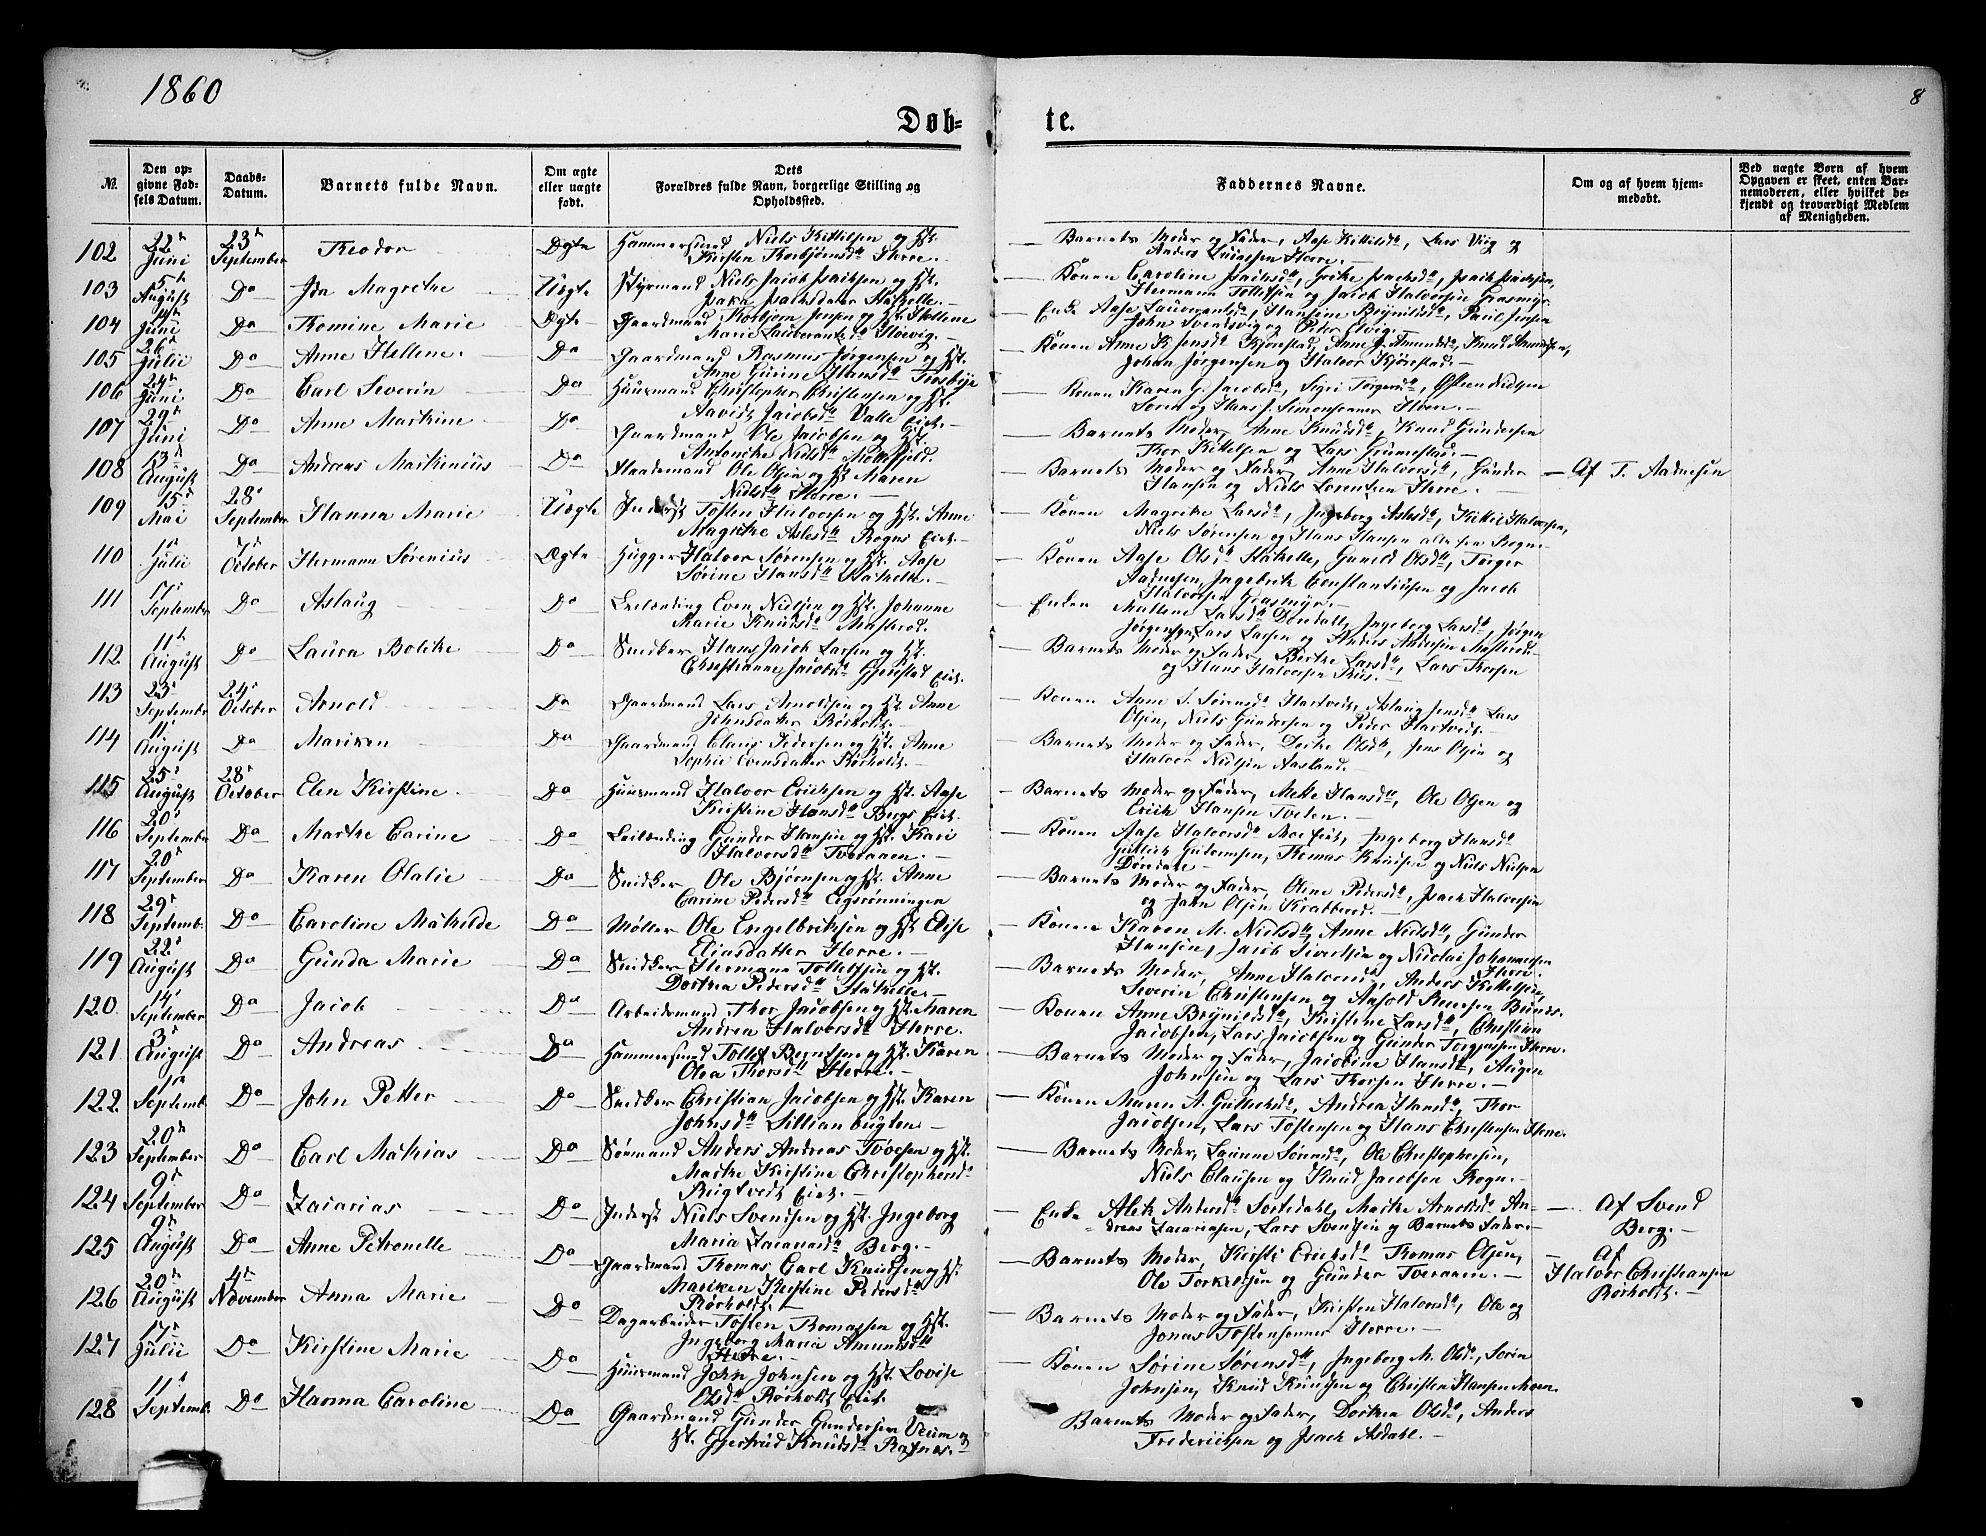 1860
8
Døb-
te.
No.
Den op-
givne Fød-
sels Datum.
Daabs-
Datum.
Barnets fulde Navn.
Om ægte
eller uægte
født.
Dets
Forældres fulde Navn, borgerlige Stilling og
Opholdssted.
Faddernes Navne.
Om og af hvem hjem-
medøbt.
Ved uægte Børn af hvem
Opgaven er skeet, enten Bar-
nemoderen, eller hvilket be-
kjendt og troværdigt Medlem
af Menigheden.
102 22de Juni 23de September Theodor Ægte Hammersmed Niels Kittilsen og Hst.
Kirsten Thorbjørnsdtr Herre.
Barnets Moder og Fader, Aase Kittilsdtr, Lars Viig og
Anders Herre.
103 5te August Do Ida Magrethe Uægte Styrmand Niels Jacob Isaksen og Hst.
Isaksdatter Stathelle.
Konen Caroline Isaksdtr, Grethe Isacksdtr, Isack Isacksen,
Hermann Tollefsen og Jacob Halvorsen Grasmyr.
104 Juni Do Thomine Marie Ægte Gaardmand Thorbjørn Jensen og Hst. Hellene
Marie Laurentsdtr
Enke Aase Laurentsdtr, Hansine Brynildsdtr, Paul Jensen
John Svendsvig og Peder
105 26de Julii Do Anne Hellene Do Gaardmand Rasmus Jørgensen og Hst.
Anne Gurine Hansdtr Trosbye
Konen Anne K. Jensdtr Kjørstad, Anne G. Amundsdtr, Knud Amundsen,
Johan Jørgensen og Halvor Kjørestad.
106 24de Juni Do Carl Severin Do Huusmand Christopher Christensen og Hst.
Jacobsdtr Valle Eiet.
Konen Karen G. Jacobsdtr, Sigri Torgersdtr, Østeen Nielsen
Søren og Hans J. Simonsønner
107 29de Juni Do Anne Marthine Do Gaardmand Ole Jacobsen og Hst.
Antonethe Nielsdtr
Barnets Moder, Anne Knudsdtr, Knud Gundersen
Thor Kittelsen og Lars Grummestad.
108 13de August Do Andreas Marthinius Do Ole Olsen og Hst Maren
Nielsdtr Herre.
Barnets Moder og Fader, Anne Halvorsdtr, Gunder
Hansen og Niels Lorentsen Herre.
Af T. Aadnesen
109 15de Mai 28de September Hanna Marie Uægte Inderst Tosten Halvorsen og Hst. Anne
Magrethe Aslesdtr Rogns Eiet.
Konen Magrethe Larsdtr, Ingeborg Aslesdtr, Kittil Halvorsen,
Niels Sørensen og Hans Hansen alle fra Rogn.
110 1ste Julii 7de October Hermann Sørenius Ægte Hugger Halvor Sørensen og Hst. Aase
Sørine Hansdtr Stathelle.
Konen Aase Olsdtr Stathelle, Gunild Olsdtr, Torger
Aadnesen, Ingebrik Constantiusen og Jacob
Halvorsen Grasmyr.
111 17de September Do Aslaug Do Leilænding Even Nielsen og Hst. Johanne
Marie Knudsdtr Masterød.
Enken Mallene Larsdtr Dørdall, Ingeborg Larsdtr, Jørgen
Jørgensen, Lars Larsen og Anders Andersen Masterød.
112 11te August Do Laura Bolette Do Snidker Hans Jacob Larsen og Hst.
Christianne Jacobsdtr Gjerestad Eiet.
Barnets Moder og Fader, Berthe Larsdtr, Lars Thorsen
og Hans Halvorsen Riis.
113 23de September 24de October Arnold Do Gaardmand Lars Arnoldsen og Hst. Anne
Johnsdatter Rørholt.
Konen Anne S. Sørensdtr Hartvedt, Aslaug Jensdtr Lars
Olsen, Niels Gundersen og Peder Hartvedt.
114 11te August Do Mariken Do Gaardmand Claus Pedersen og Hst. Anne
Sophie Evensdatter Rørholt.
Barnets Moder og Fader, Dorthe Olsdtr, Jens Olsen og
Halvor Nielsen Aasland.
115 25de August 28de October Elen Kirstine Do Huusmand Halvor Ericksen og Hst. Aase
Kirstine Hansdtr Bergs Eiet.
Barnets Moder og Fader, Mette Hansdtr, Ole Olsen og
Erick Hansen Tveten.
116 20de September Do Marthe Carine Do Leilænding Gunder Hansen og Hst. Kari
Halvorsdtr Tveraaen.
Konen Aase Halvorsdtr Moe Eiet, Ingeborg Hansdtr
Gullick Gulomsen, Thomas Knudsen og Niels Nielsen
Dørdall.
117 20de September Do Karen Olalie Do Snidker Ole Bjørnsen og Hst. Anne
Carine Pedersdtr Eegsrønningen
Barnets Moder og Fader, Olene Pedersdtr, Isack Halvorsen
og John Olsen Krabberød.
118 29de Septemb. Do Caroline Mathilde Do Møller Ole Engelbrektsen og Hst. Elise
Eliasdatter Herre.
Konen Karen M. Nielsdtr, Anne Nielsdtr, Gunder
Hansen, Jacob Sivertsen og Nicolai Johannesen
Herre.
119 22de August Do Gunda Marie Do Snidker Hermann Tollefsen og Hst.
Dorthea Pedersdtr Stathelle.
Barnets Moder, Anne Halvorsdtr, Anders Kittelsen,
Severin Christensen og Arnold Knudsen Bunds.
120. 14de September Do Jacob Do Arbeidsmand Thor Jacobsen og Hst. Karen
Andrea Halvorsdtr Herre.
Konen Anne Brynildsdtr, Kirstine Larsdtr, Christian
Jacobsen, Lars Jacobsen og Gunder Torgersen Herre.
121 3de August Do Andreas Do Hammersmed Tollef Berntsen og Hst. Karen
Olea Thorsdtr Herre.
Barnets Moder og Fader, Jacobine Hansdtr, Augen
Johnsen og Lars Thorsen Herre.
122 1ste Septemb. Do John Petter Do Snidker Christian Jacobsen og Hst. Karen
Johnsdtr Sillianbugten
Konen Maren A. Gulliksdtr, Andrea Hansdtr, Thor
Jacobsen, Lars Tostensen og Hans Christensen Herre.
123 20de September Do Carl Mathias Do Sømand Anders Andreas Tvoesen og Hst.
Marthe Kirstine Christophersdtr
Rugtvedt Eiet.
Barnets Moder, Laurine Sørensdtr, Ole Christophersen,
Niels Clausen og Knud Jacobsen Rogn.
124 9de September Do Zacarias Do Inderst Niels Svendsen og Hst. Ingeborg
Maria Zacariasdtr Berg.
Enke Aleth Andersdtr Sortedahl, Marthe Arnoldsdtr An-
dreas Zacariasen, Lars Svensen og Barnets Fader.
Af Svend
Berg.
125 9de August Do Anne Petronelle Do Gaardmand Thomas Carl Knudsen og Hst.
Mariken Kirstine Pedersdtr
Rørholt.
Barnets Moder, Kirsti Ericksdtr Thomas Olsen,
Ole Torkeldsen og Gunder Tveraaen.
Af
Halvor Christiansen
Rørholt.
126 20de August 4de November Anna Marie Do Dagarbeider Tosten Thomassen og Hst.
Ingeborg Maria Amundsdtr
Herre.
Barnets Moder og Fader, Kirsten Halvorsdtr, Ole og
Jonas Tostensønner Herre.
127 17de Julii Do Kirstine Marie Do Huusmand John Johnsen og Hst Lovise
Olsdtr Rørholt Eiet.
Konen Sørine Sørensdtr, Ingeborg M. Olsdtr, Søren
Johnsen, Knud Knudsen og Christen Hansen Moen.
128 11te Septemb. Do Hanna Caroline Do Gaardmand Gunder Gundersen Veum og
Hst. Gjertrud Knudsdtr Rafnæs.
Barnets Moder og Fader, Dorthea Olsdtr, Anders
Frederiksen og Isack Asdahl.